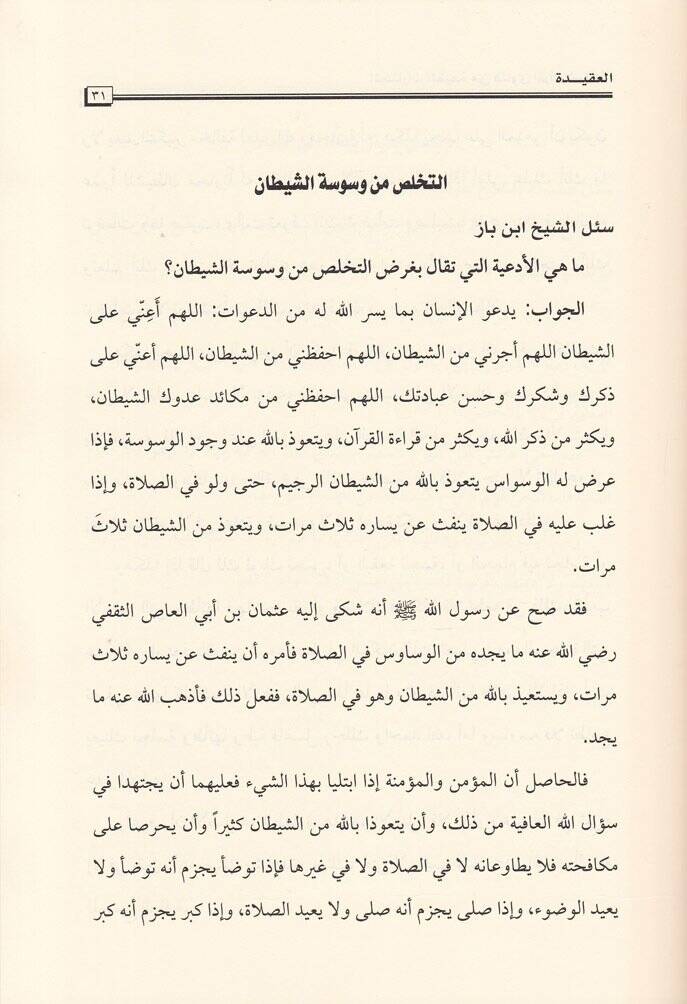 العقيـــدة
٣١
التخلص من وسوسة الشيطان
سئل الشيخ ابن باز
ما هي الأدعية التي تقال بغرض التخلص من وسوسة الشيطان؟
الجواب: يدعو الإنسان بما يسر الله له من الدعوات: اللهم أَعِنّي على
الشيطان اللهم أجرني من الشيطان، اللهم احفظني من الشيطان، اللهم أعنّي على
ذكرك وشكرك وحسن عبادتك، اللهم احفظني من مكائد عدوك الشيطان،
ويكثر من ذكر الله، ويكثر من قراءة القرآن، ويتعوذ بالله عند وجود الوسوسة، فإذا
عرض له الوسواس يتعوذ بالله من الشيطان الرجيم، حتى ولو في الصلاة، وإذا
غلب عليه في الصلاة ينفث عن يساره ثلاث مرات، ويتعوذ من الشيطان ثلاثَ
مرات.
فقد صح عن رسول الله ﷺ أنه شكى إليه عثمان بن أبي العاص الثقفي
رضي الله عنه ما يجده من الوساوس في الصلاة فأمره أن ينفث عن يساره ثلاث
مرات، ويستعيذ بالله من الشيطان وهو في الصلاة، ففعل ذلك فأذهب الله عنه ما
يجد.
فالحاصل أن المؤمن والمؤمنة إذا ابتليا بهذا الشيء فعليهما أن يجتهدا في
سؤال الله العافية من ذلك، وأن يتعوذا بالله من الشيطان كثيراً وأن يحرصا على
مكافحته فلا يطاوعانه لا في الصلاة ولا في غيرها فإذا توضأ يجزم أنه توضأ ولا
يعيد الوضوء، وإذا صلى يجزم أنه صلى ولا يعيد الصلاة، وإذا كبر يجزم أنه كبر